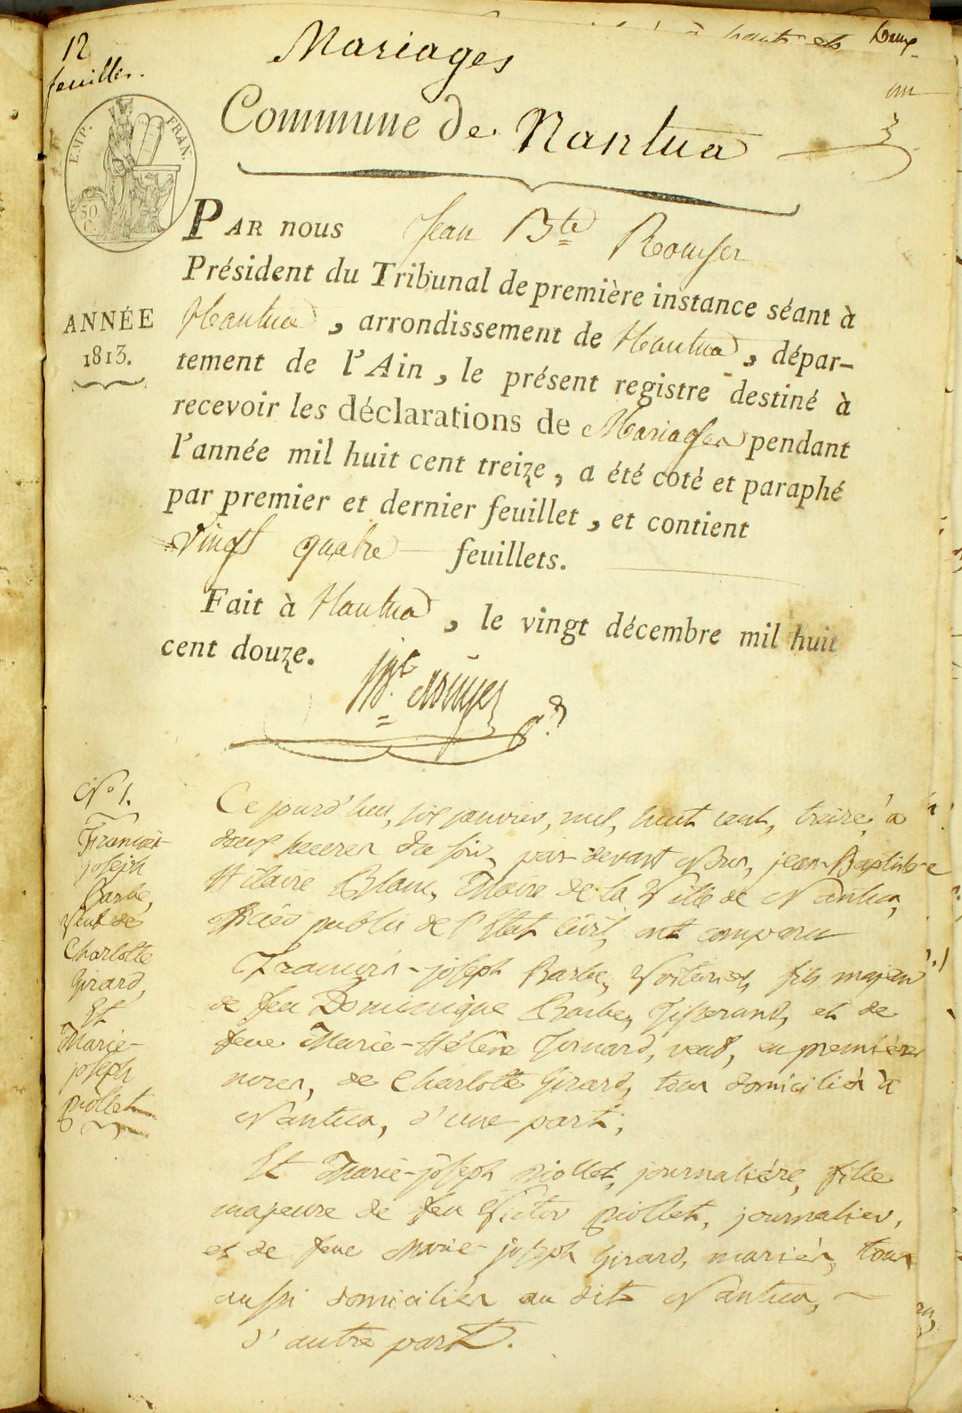 12
feuilles.
Mariages
Commune de Nantua
EMP. FRAN.
PAR nous Jean Bte
Président du Tribunal de première instance séant à
ANNÉE
1813.
Nantua, arrondissement de Nantua, dépar-
tement de l'Ain, le présent registre destiné à
recevoir les déclarations de Mariages pendant
l'année mil huit cent treize, a été coté et paraphé
par premier et dernier feuillet, et contient
vingt quatre feuillets.
Fait à Nantua, le vingt décembre mil huit
cent douze.
No 1.
François-
joseph
Barbe,
Veuf de
Charlotte
Girard,
Et
Marie-
joseph
piollet
Ce jourd'hui, six janvier, mil, huit cent, treize, à
deux heures du soir, par-devant Nous, jean-Baptiste
Hilaire Blanc, Maire de la Ville de Nantua,
officier public de l'Etat civil, ont comparu
François-joseph Barbe, Voiturier, fils majeur
de feu Dominique Barbe, Tisserand, et de
feue Marie-Hélène, veuf, en premières
noces, de Charlotte Girard, tous domiciliés à
Nantua, d'une part;
Et Marie-joseph piollet, journalière, fille
majeure de feu Victor piollet, journalier,
et de feue Marie-joseph Girard, mariés, tous
aussi domiciliés au dit Nantua,
d'autre part.